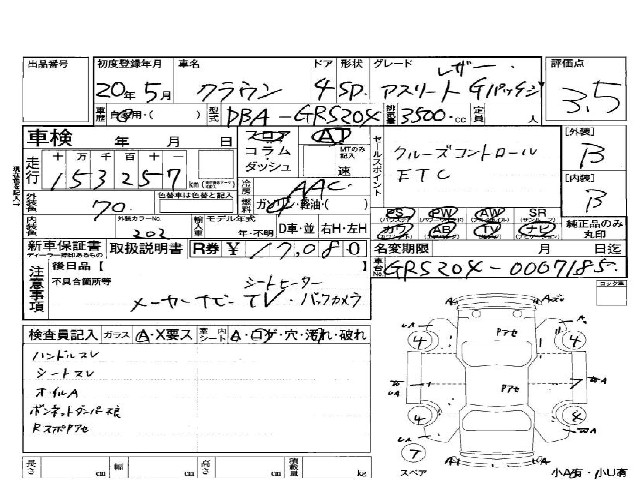 出品番号 初度登録年月 車名 ドア 形状 グレード 評価点
20年5月 クラウン 4 SD. レザー アスリート Gパッケージ 3.5
車歴 自家用・( ) 型式 DBA-GRS204 排気量 3500.cc 定員 人
車検 年 月 日 フロア コラム ダッシュ AT MTのみ記入 速
走行 十万千百十一 153257 km
セールスポイント クルーズコントロール
ETC
[外装] B
[内装] B
外装色 70. 色替車は色替と記入 冷房 AAC 燃料 ガソリン・軽油・( )
内装色 外装カラーNo. 202 輸入車 モデル年式 年・不明 D車・並 右H・左H
PS PW AW SR
カワ AB TV ナビ 純正品のみ丸印
新車保証書 取扱説明書 R券 ¥17,080
名変期限 月 日迄
車台No. GRS204-0007185.
注意事項 後日品【 】
不具合箇所等 シートヒーター
メーカーナビ TV・バックカメラ
コーション
検査員記入 ガラス A・X要ス 室内シート A・コゲ・穴・汚れ・破れ
ハンドルスレ
シートスレ
オイルA
Rスポアセ
Pアセ
Pアセ
4 4 4 4 7
スペア 小A有・小U有
長さ cm 幅 cm 高さ cm 積載量 kg